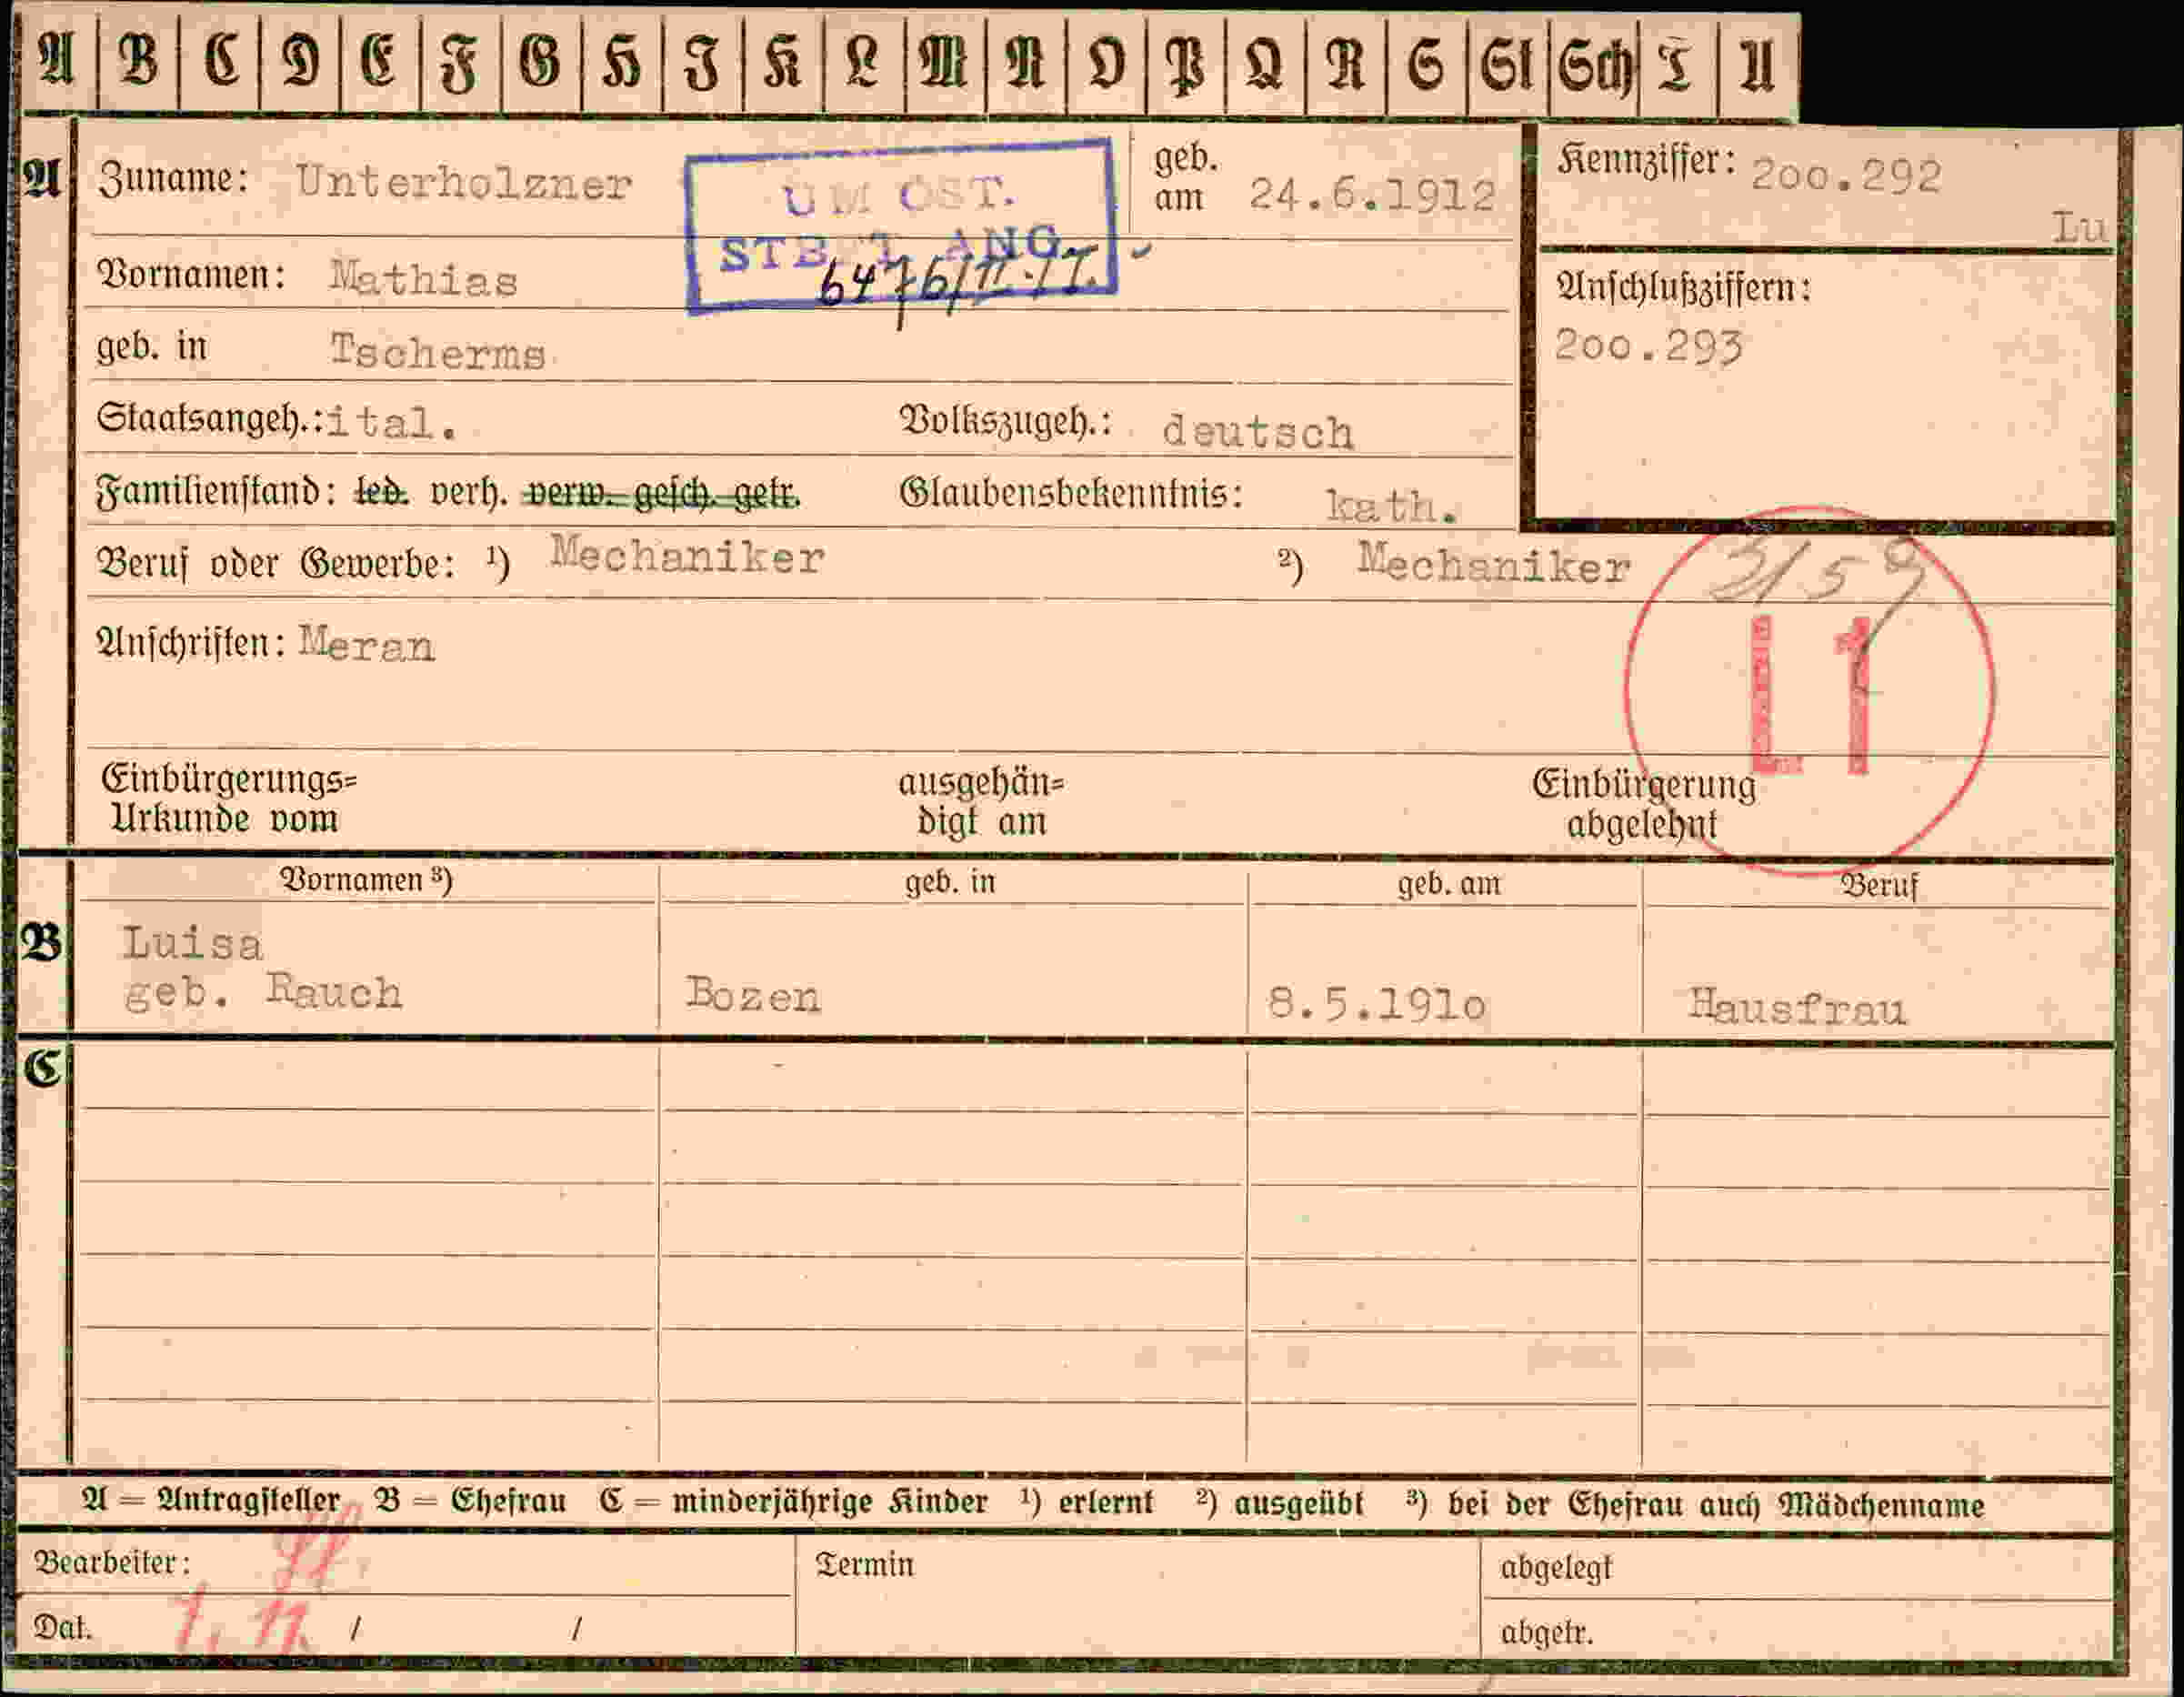 A B C D E F G H I K L M N O P Q R S St Sch T U
A Zuname: Unterholzner geb. am 24.6.1912 Kennziffer: 2oo.292
Lu
UM ÖST.
STB. ANG.
6476/II-17.
Vornamen: Mathias
Anschlußziffern:
2oo.293
geb. in Tscherms
Staatsangeh.: ital. Volkszugeh.: deutsch
Familienstand: led. verh. verw. gesch. getr. Glaubensbekenntnis: kath.
Beruf oder Gewerbe: ¹) Mechaniker ²) Mechaniker
3/59
L1
Anschriften: Meran
Einbürgerungs= ausgehän= Einbürgerung
Urkunde vom digt am abgelehnt
Vornamen ³) geb. in geb. am Beruf
B Luisa
geb. Rauch Bozen 8.5.191o Hausfrau
C
A = Antragsteller B = Ehefrau C = minderjährige Kinder ¹) erlernt ²) ausgeübt ³) bei der Ehefrau auch Mädchenname
Bearbeiter: Termin abgelegt
Dat. 1. 11. / / abgetr.